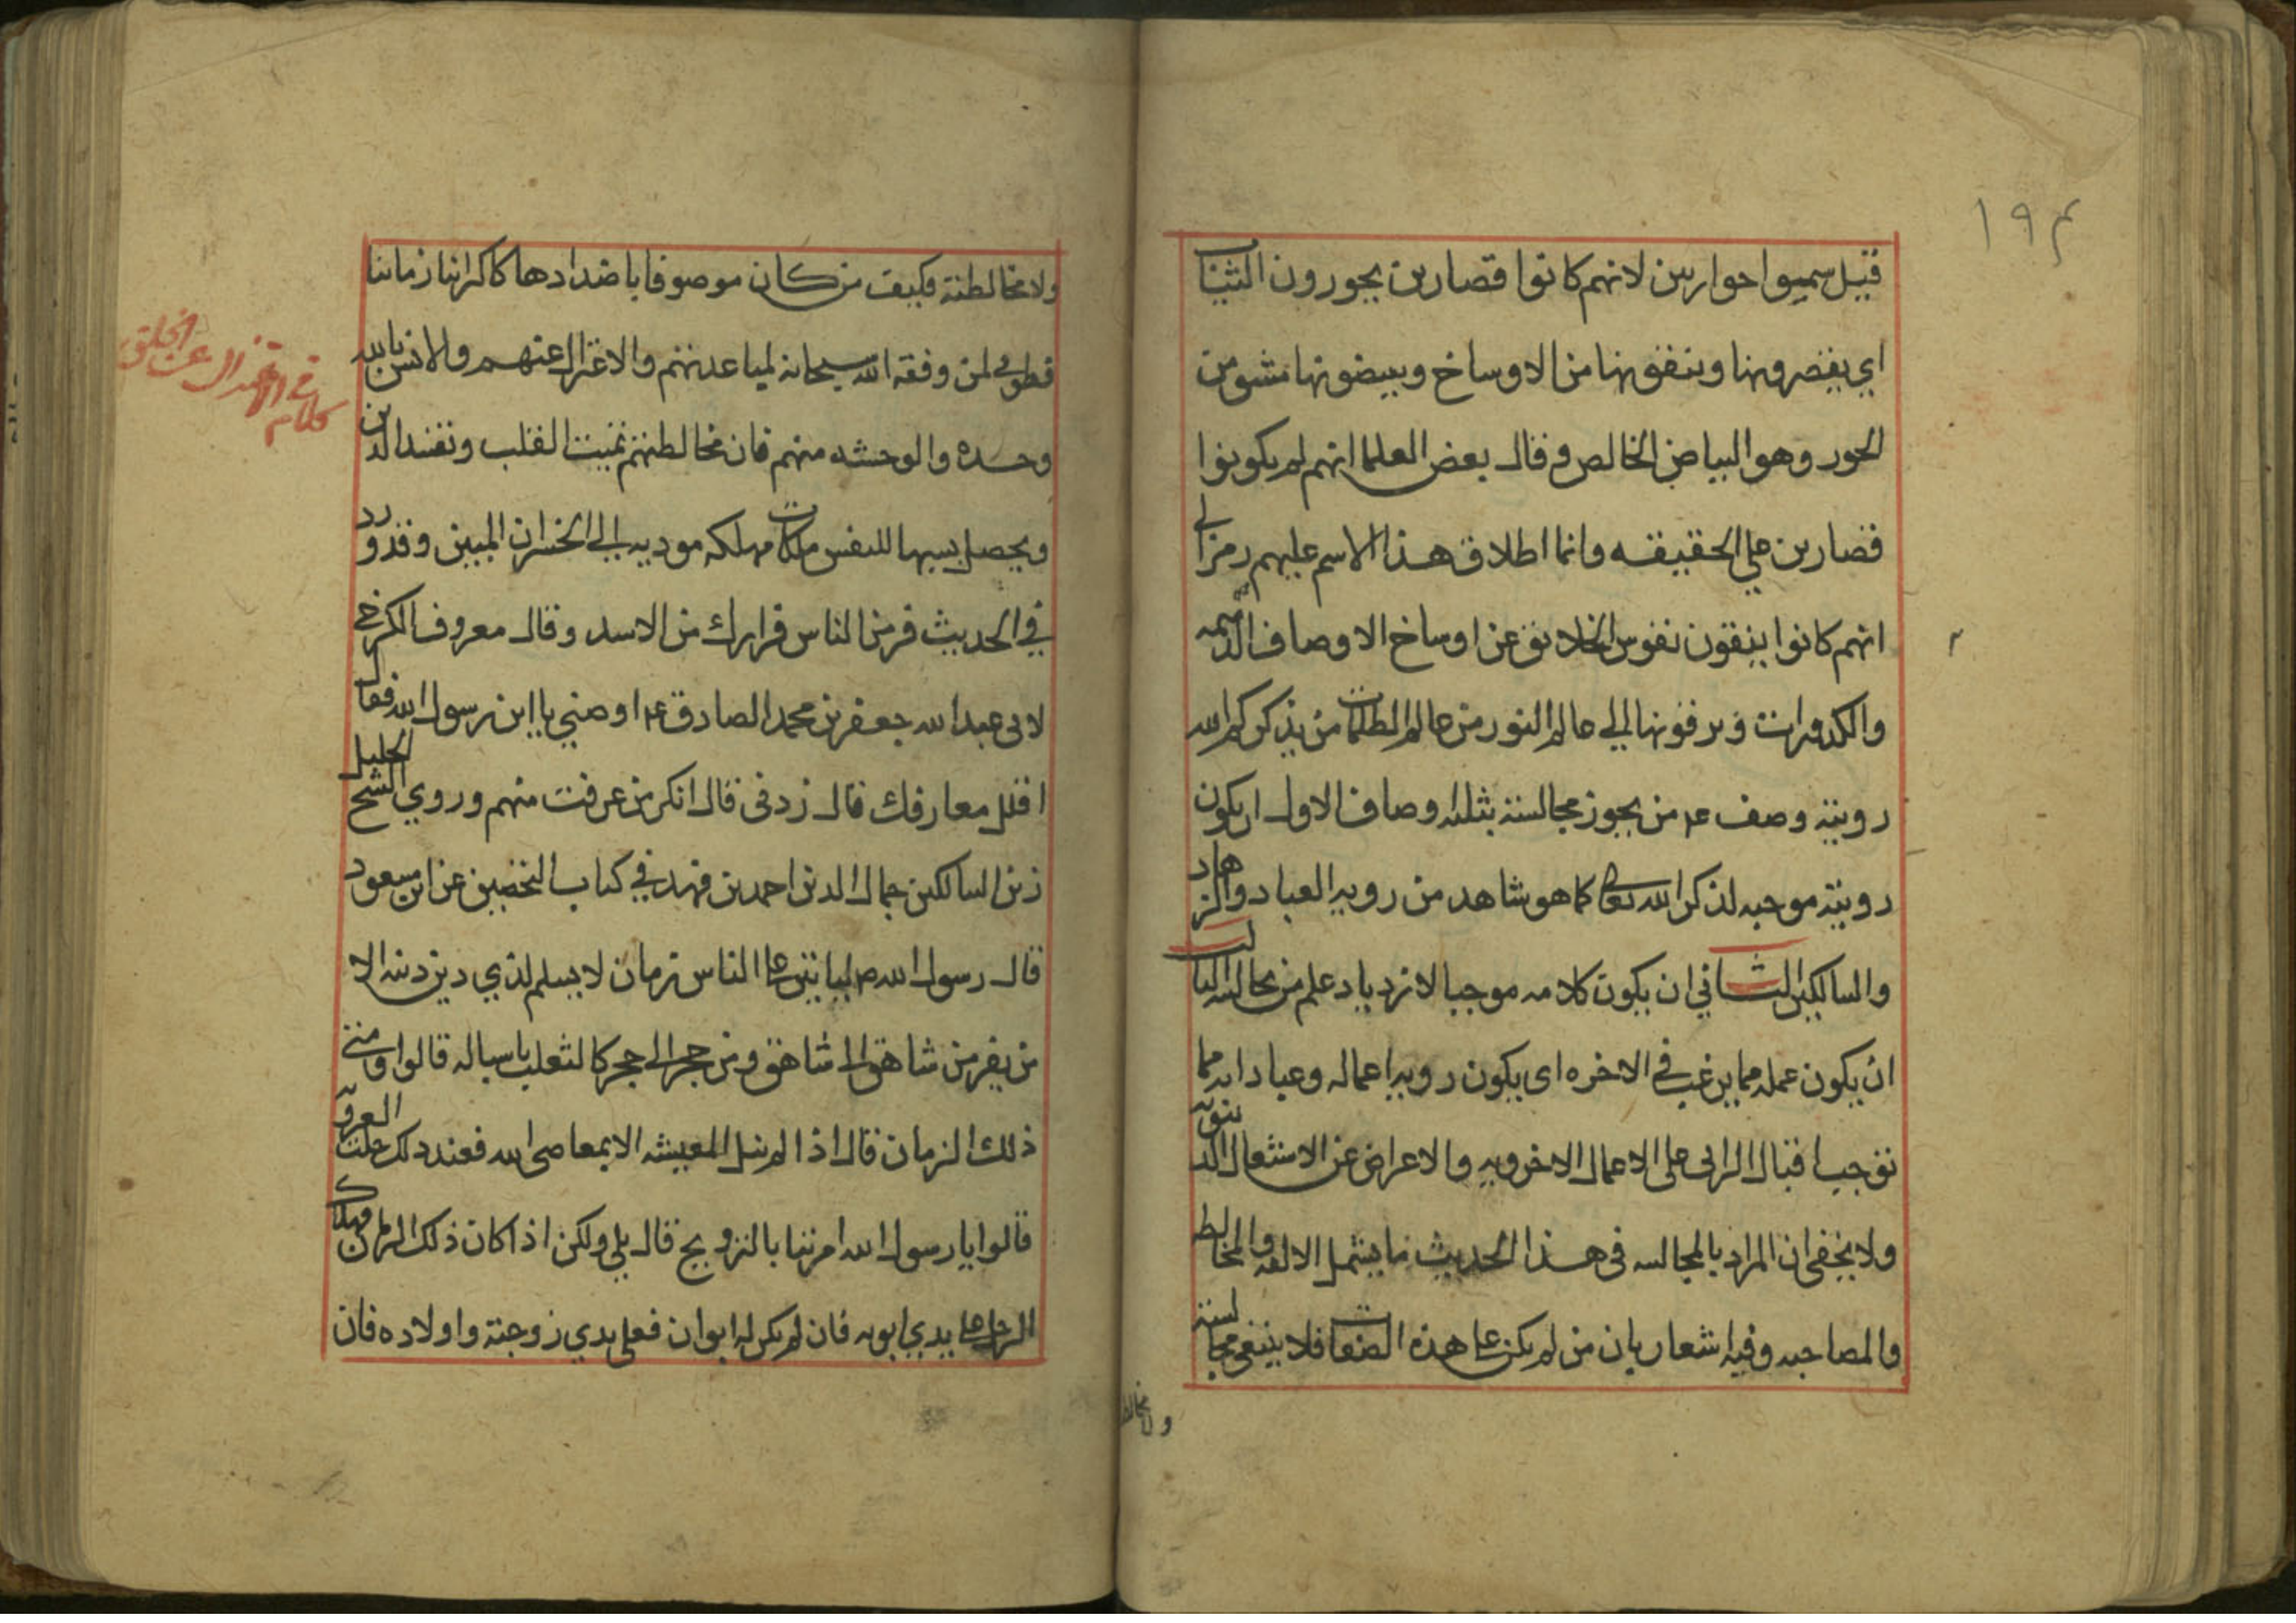 ١٩٣
قيل سموا حواريين لانهم كانوا قصارين يحورون الثياب
اي يقصرونها وينقونها من الاوساخ ويبيضونها مشتق من
الحور وهو البياض الخالص وقال بعض العلما انهم لم يكونوا
قصارين على الحقيقه وانما اطلاق هذا الاسم عليهم رمز الى
انهم كانوا ينقون نفوس الخلائق عن اوساخ الاوصاف الذميمه
والكدورات ويرقونها الى عالم النور من عالم الظلمات من يذكركم الله
رويته وصف ع من يجوز مجالسته بثلثه اوصاف الاول ان يكون
رويته موجبه لذكر الله تعالى كما هو شاهد من رويه العباد والزهاد
والسالكين الثاني ان يكون كلامه موجبا لازدياد علم من يجالسه الثالث
ان يكون عمله مما يرغب في الاخره اى يكون رويه اعماله وعباداته مما
توجب اقبال الرائى على الاعمال الاخرويه والاعراض عن الاشتعال الدنيويه
ولا يخفى ان المراد بالمجالسه فى هذا الحديث ما يشمل الالفه والمخالطه
والمصاحبه وفيه اشعار بان من لم يكن على هذه الصفات فلا ينبغي مجالسته
ولا مخالطته
ولا مخالطته فكيف من كان موصوفا باضدادها كاكثر ابنا زماننا
فطوبى لمن وفقه الله سبحانه لمباعدتهم والاعتزال عنهم والانس بالله
وحده والوحشه منهم فان مخالطتهم تميت القلب وتفسد الدين
ويحصل بسببها للنفس ملكات مهلكه موديه الى الخسران المبين وقد ورد
في الحديث فر من الناس فرارك من الاسد وقال معروف الكرخي
لابى عبد الله جعفر بن محمد الصادق ع اوصني يا ابن رسول الله فقال
اقلل معارفك قال زدنى قال انكر من عرفت منهم وروي الشيخ الجليل
زين السالكين جمال الدين احمد بن فهد في كتاب التحصين عن ابن مسعود
قال رسول الله ص لياتين على الناس زمان لا يسلم لذي دين دينه الا
من يفر من شاهق الى شاهق ومن حجر الى حجر كالثعلب باسباله قالوا ومتى
ذلك الزمان قال اذا لم ينل المعيشه الا بمعاصى الله فعند ذلك حلت العزوبه
قالوا يا رسول الله امرتنا بالتزويج قال بلى ولكن اذا كان ذلك الزمان فهلاك
الرجل على يدي ابويه فان لم يكن له ابوان فعلى يدي زوجته واولاده فان
كلام في الاعتزال عن الخلق